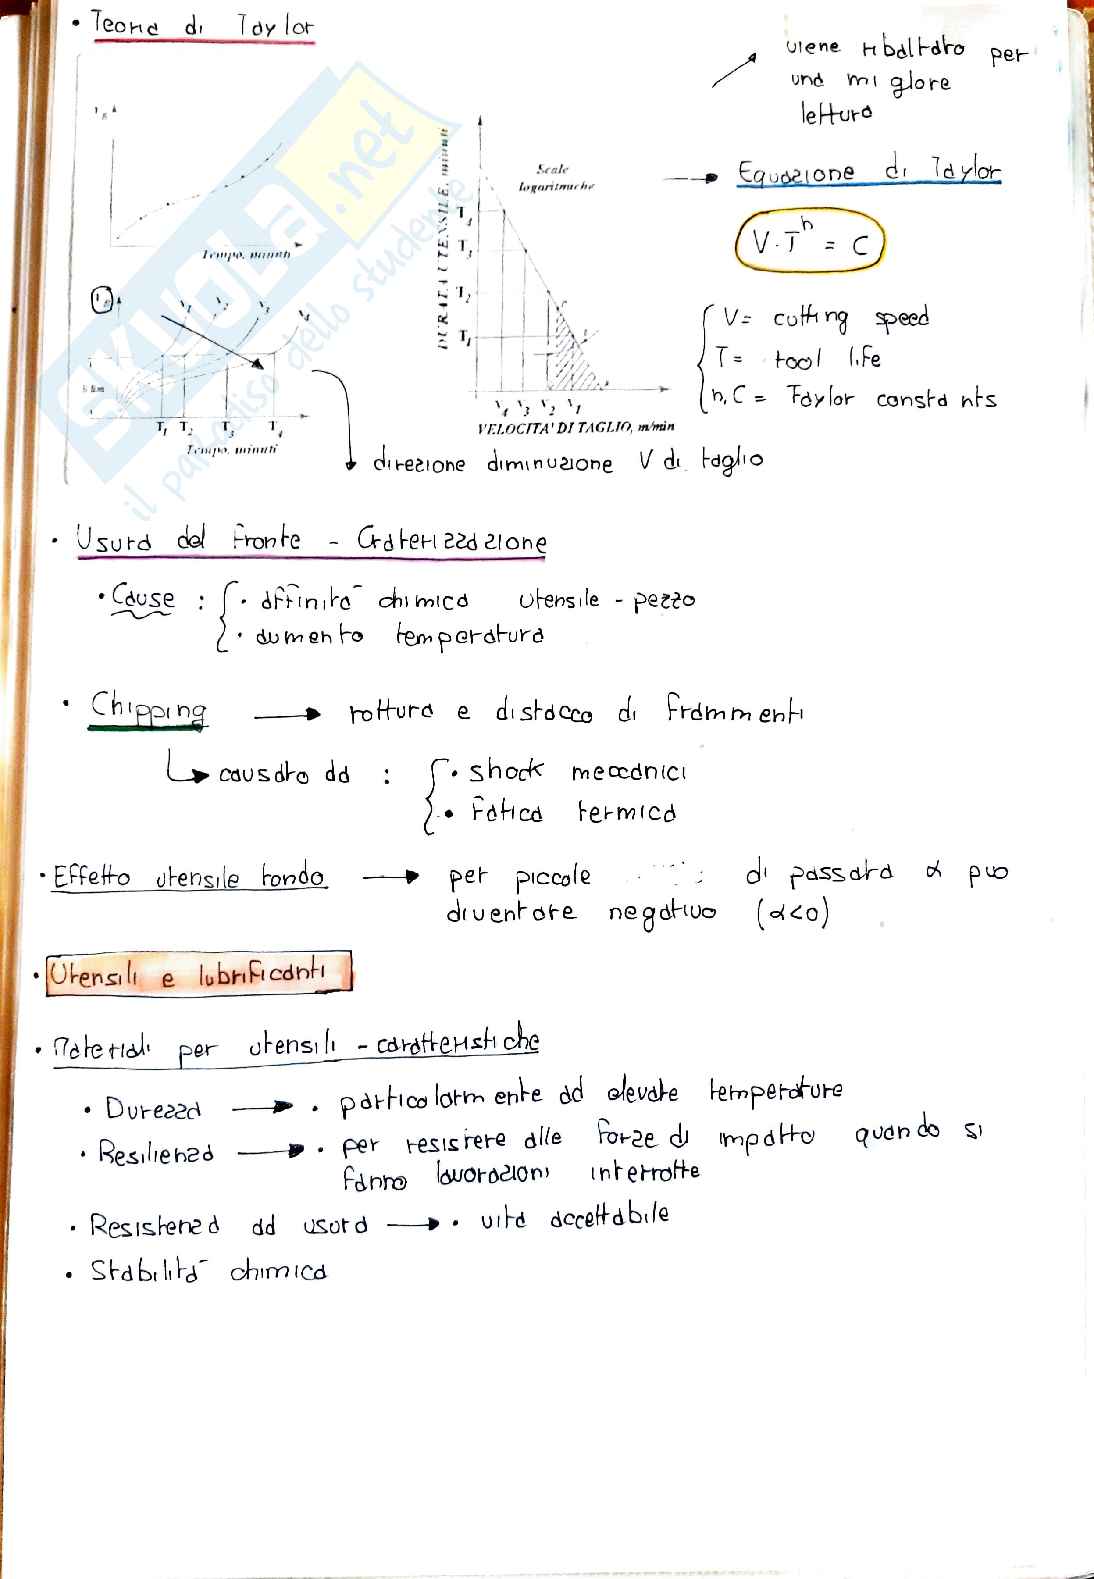 • Teoria di Taylor
viene ribaltato per
una migliore
lettura
Tempo, minuti
V1 V2 V3 V4
T1 T2 T3 T4
Tempo, minuti
DURATA UTENSILE, minuti
Scale
logaritmiche
T4
T3
T2
T1
V4 V3 V2 V1
VELOCITA' DI TAGLIO, m/min
→ Equazione di Taylor
V · Tⁿ = C
V = cutting speed
T = tool life
n, C = Taylor constants
direzione diminuzione V di taglio
SKUOLA.net
il paradiso dello studente
• Usura del fronte - Craterizzazione
• Cause : • affinità chimica utensile - pezzo
• aumento temperatura
• Chipping → rottura e distacco di frammenti
↳ causato da : • shock meccanici
• fatica termica
• Effetto utensile tondo → per piccole di passata α può
diventare negativo (α<0)
• Utensili e lubrificanti
• Materiali per utensili - caratteristiche
• Durezza → • particolarmente ad elevate temperature
• Resilienza → • per resistere alle forze di impatto quando si
fanno lavorazioni interrotte
• Resistenza ad usura → • vita accettabile
• Stabilità chimica